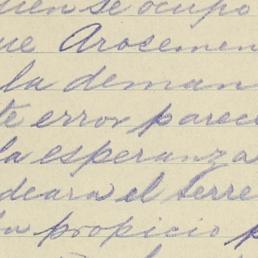 uien se ocupo
ue Arosemen
la deman
te error parece
la esperanza
deara el terre
propicio p